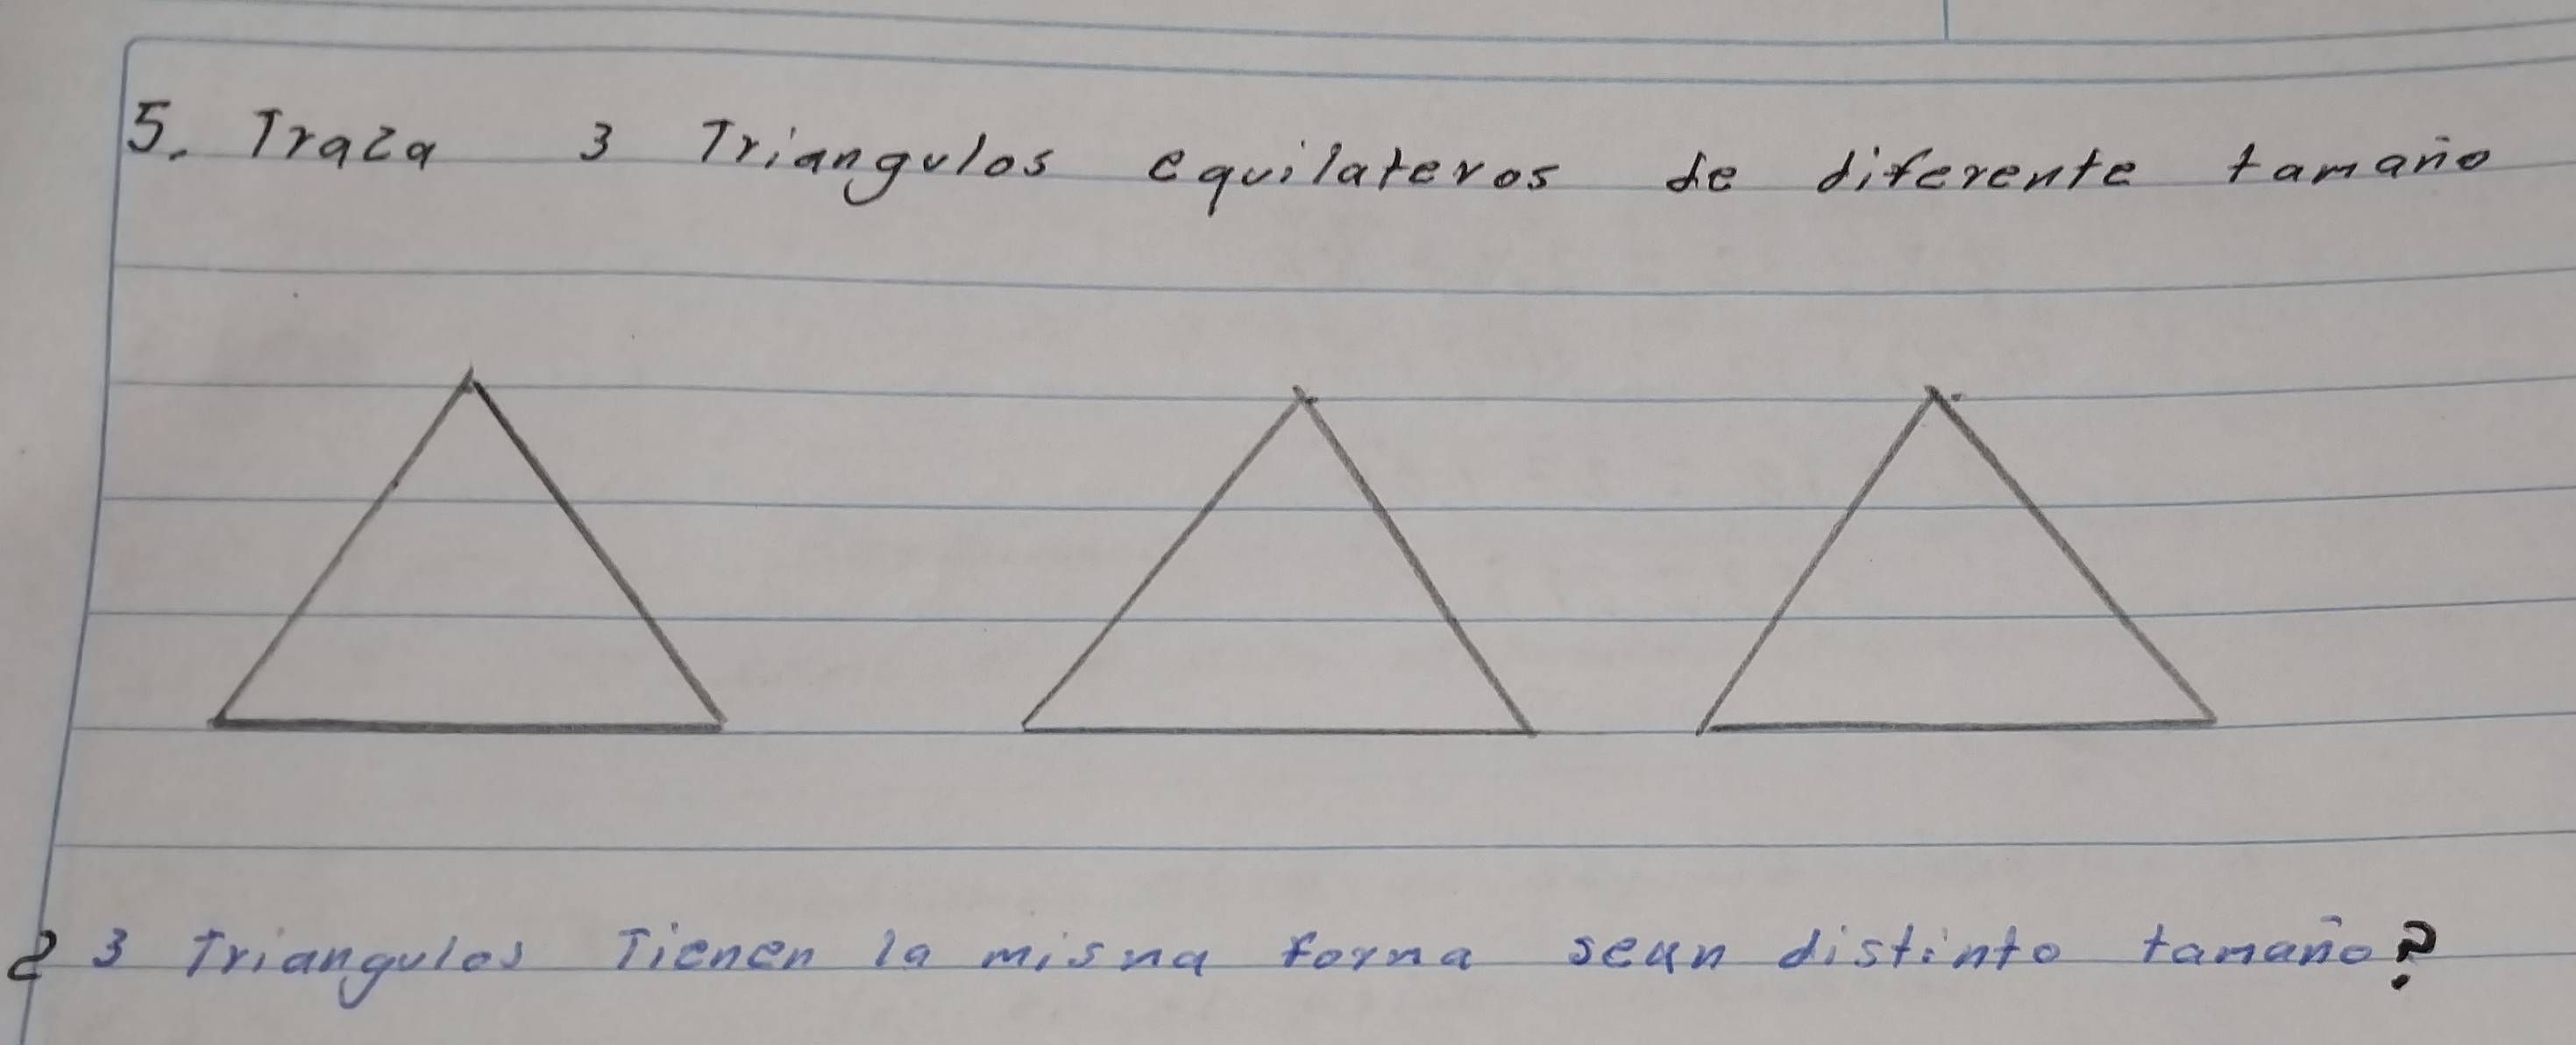 5. Traza 3 Triangulos equilateros de diferente tamaño
¿ 3 Triangulos Tienen la misna forna sean distinto tanaño?